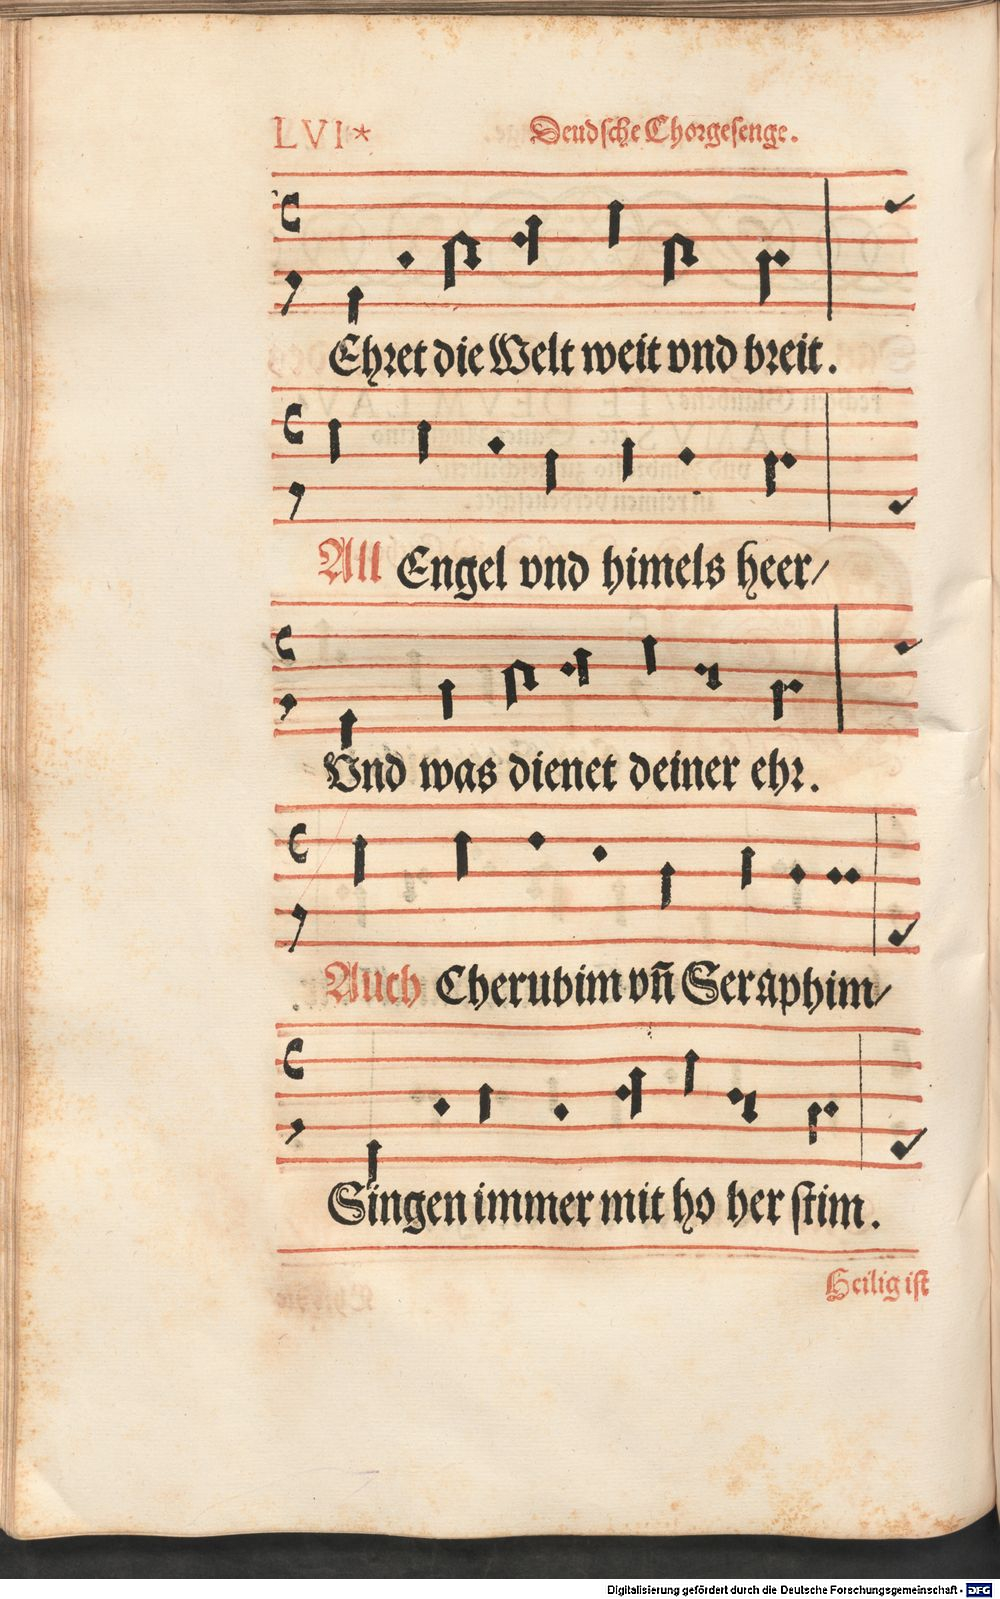 LVI*
Deudsche Chorgesenge.
Ehret die Welt weit vnd breit.
All Engel vnd himels heer/
Vnd was dienet deiner ehr.
Auch Cherubim vñ Seraphim/
Singen immer mit ho her stim.
Heilig ist
Digitalisierung gefördert durch die Deutsche Forschungsgemeinschaft - DFG